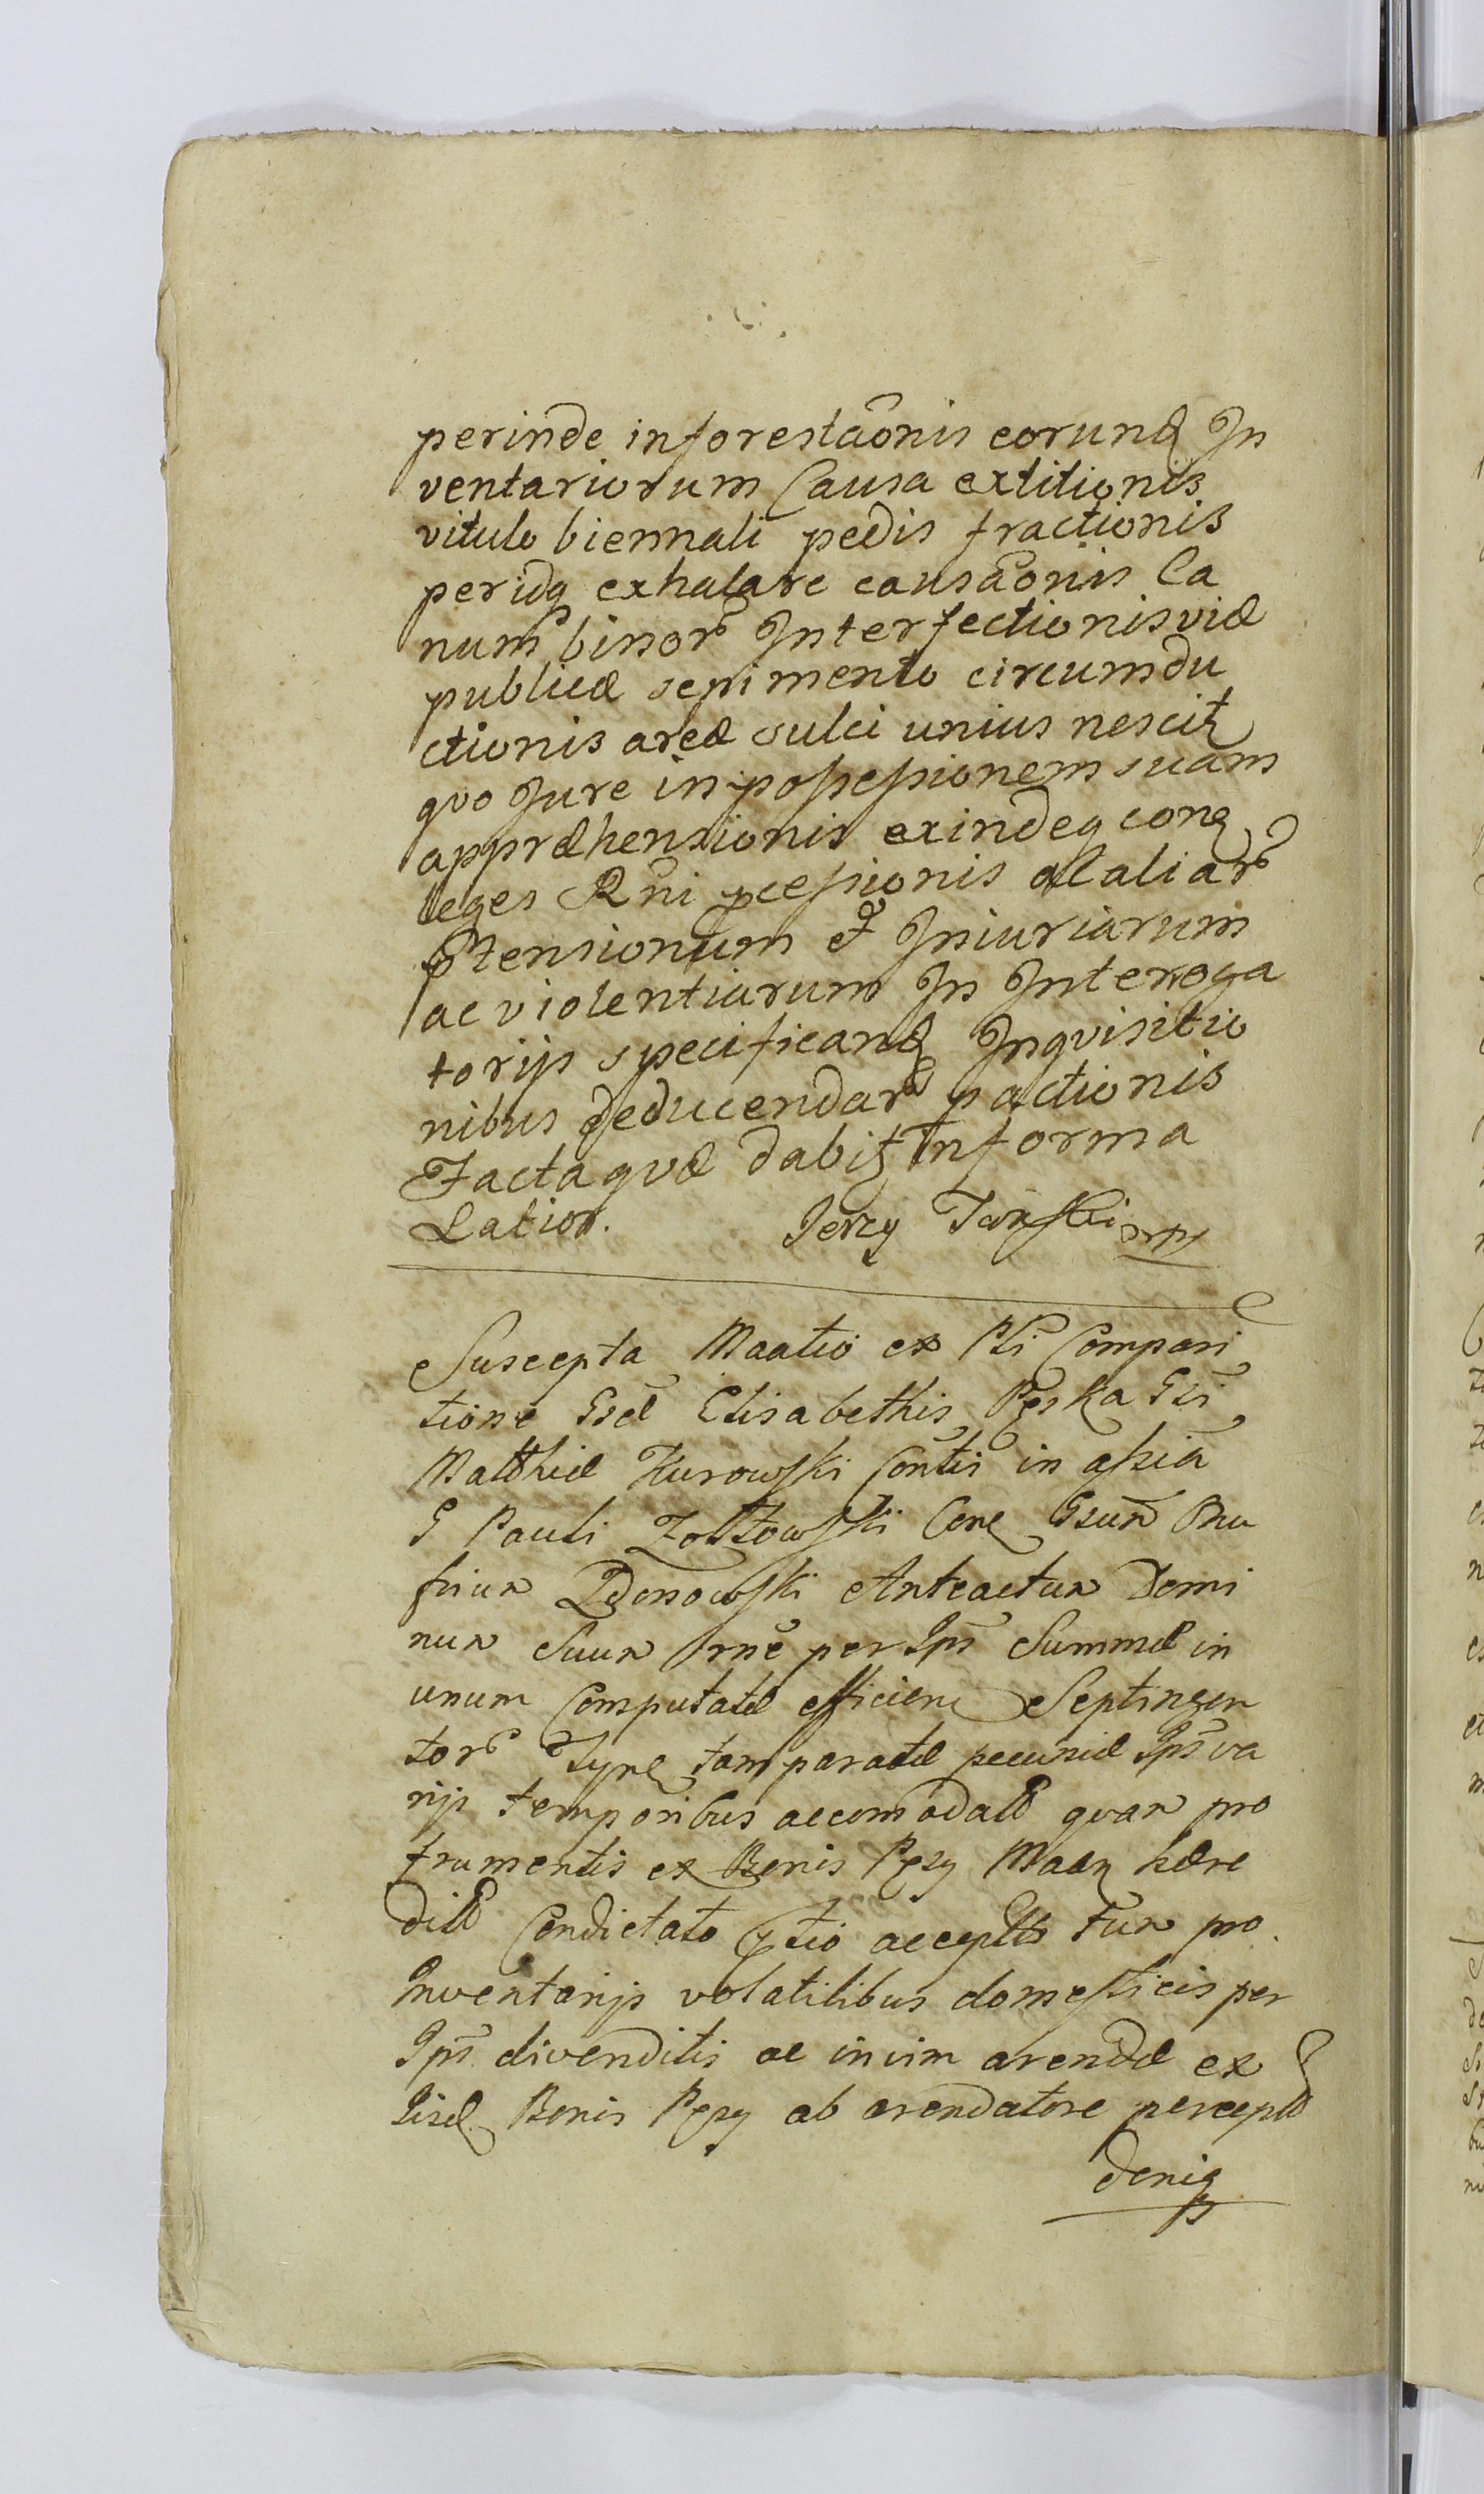 perinde inforestaõnis eorunq In
ventariorum Causa extitionis
vitulo biennali pedis fractionis
peridq exhalare causaõnis Ca
num binor Interfectionis viæ
publicæ sepimento circumdu
ctionis areæ sulci unius nescit
quo Jure in possessionem suam
appræhensionis exindeq conq
leges Rñi pcessionis al aliar
ptensionum et Iniuriarum
ac violentiarum In Interoga
torijs specificanq Inquisitio
nibus deducendar pactionis
Facta quæ dabit Informa
Latior. Jerzy
Suscepta Maatio ex Pti Compari
tione Gsæ Elisabethis Pęska Gsi
Matthiæ Kurowski Contis in assia
G Pauli Zołtowski Cone Gsum Onu
frium Zdonowski Anteactum Domi
num Suum Orñe per Ips Summæ in
unum Computatæ efficien Septingen
tor Tyne tam paratæ pecuniæ Ips va
rijs temporibus accomodatæ quam pro
frumentis ex Bonis Pęsy Maen hære
ditæ Condictato ptio acceptis tum pro
Inventarijs volatilibus domesticis per
Ips divenditis ac in vim arendæ ex
Iisd Bonis Pęsy ab arendatore perceptæ
deniq